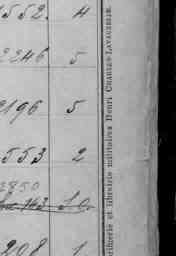 1552. 4
2246 5
2196 5
553 2
2850
208 1
imprimerie et librairie militaires Henri Charles-Lavauzelle.